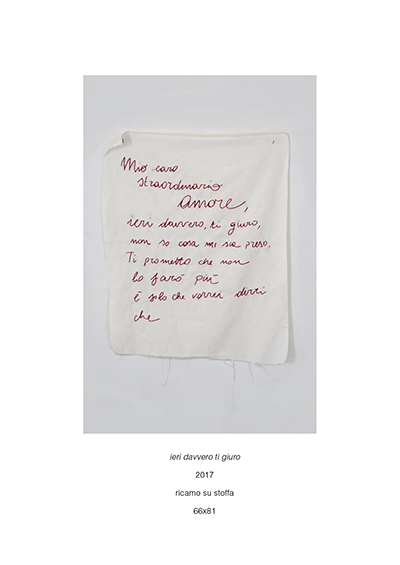 Mio caro
straordinario
amore,
ieri davvero, ti giuro,
non so cosa mi sia preso.
Ti prometto che non
lo farò più
è solo che vorrei dirti
che
ieri davvero ti giuro
2017
ricamo su stoffa
66x81